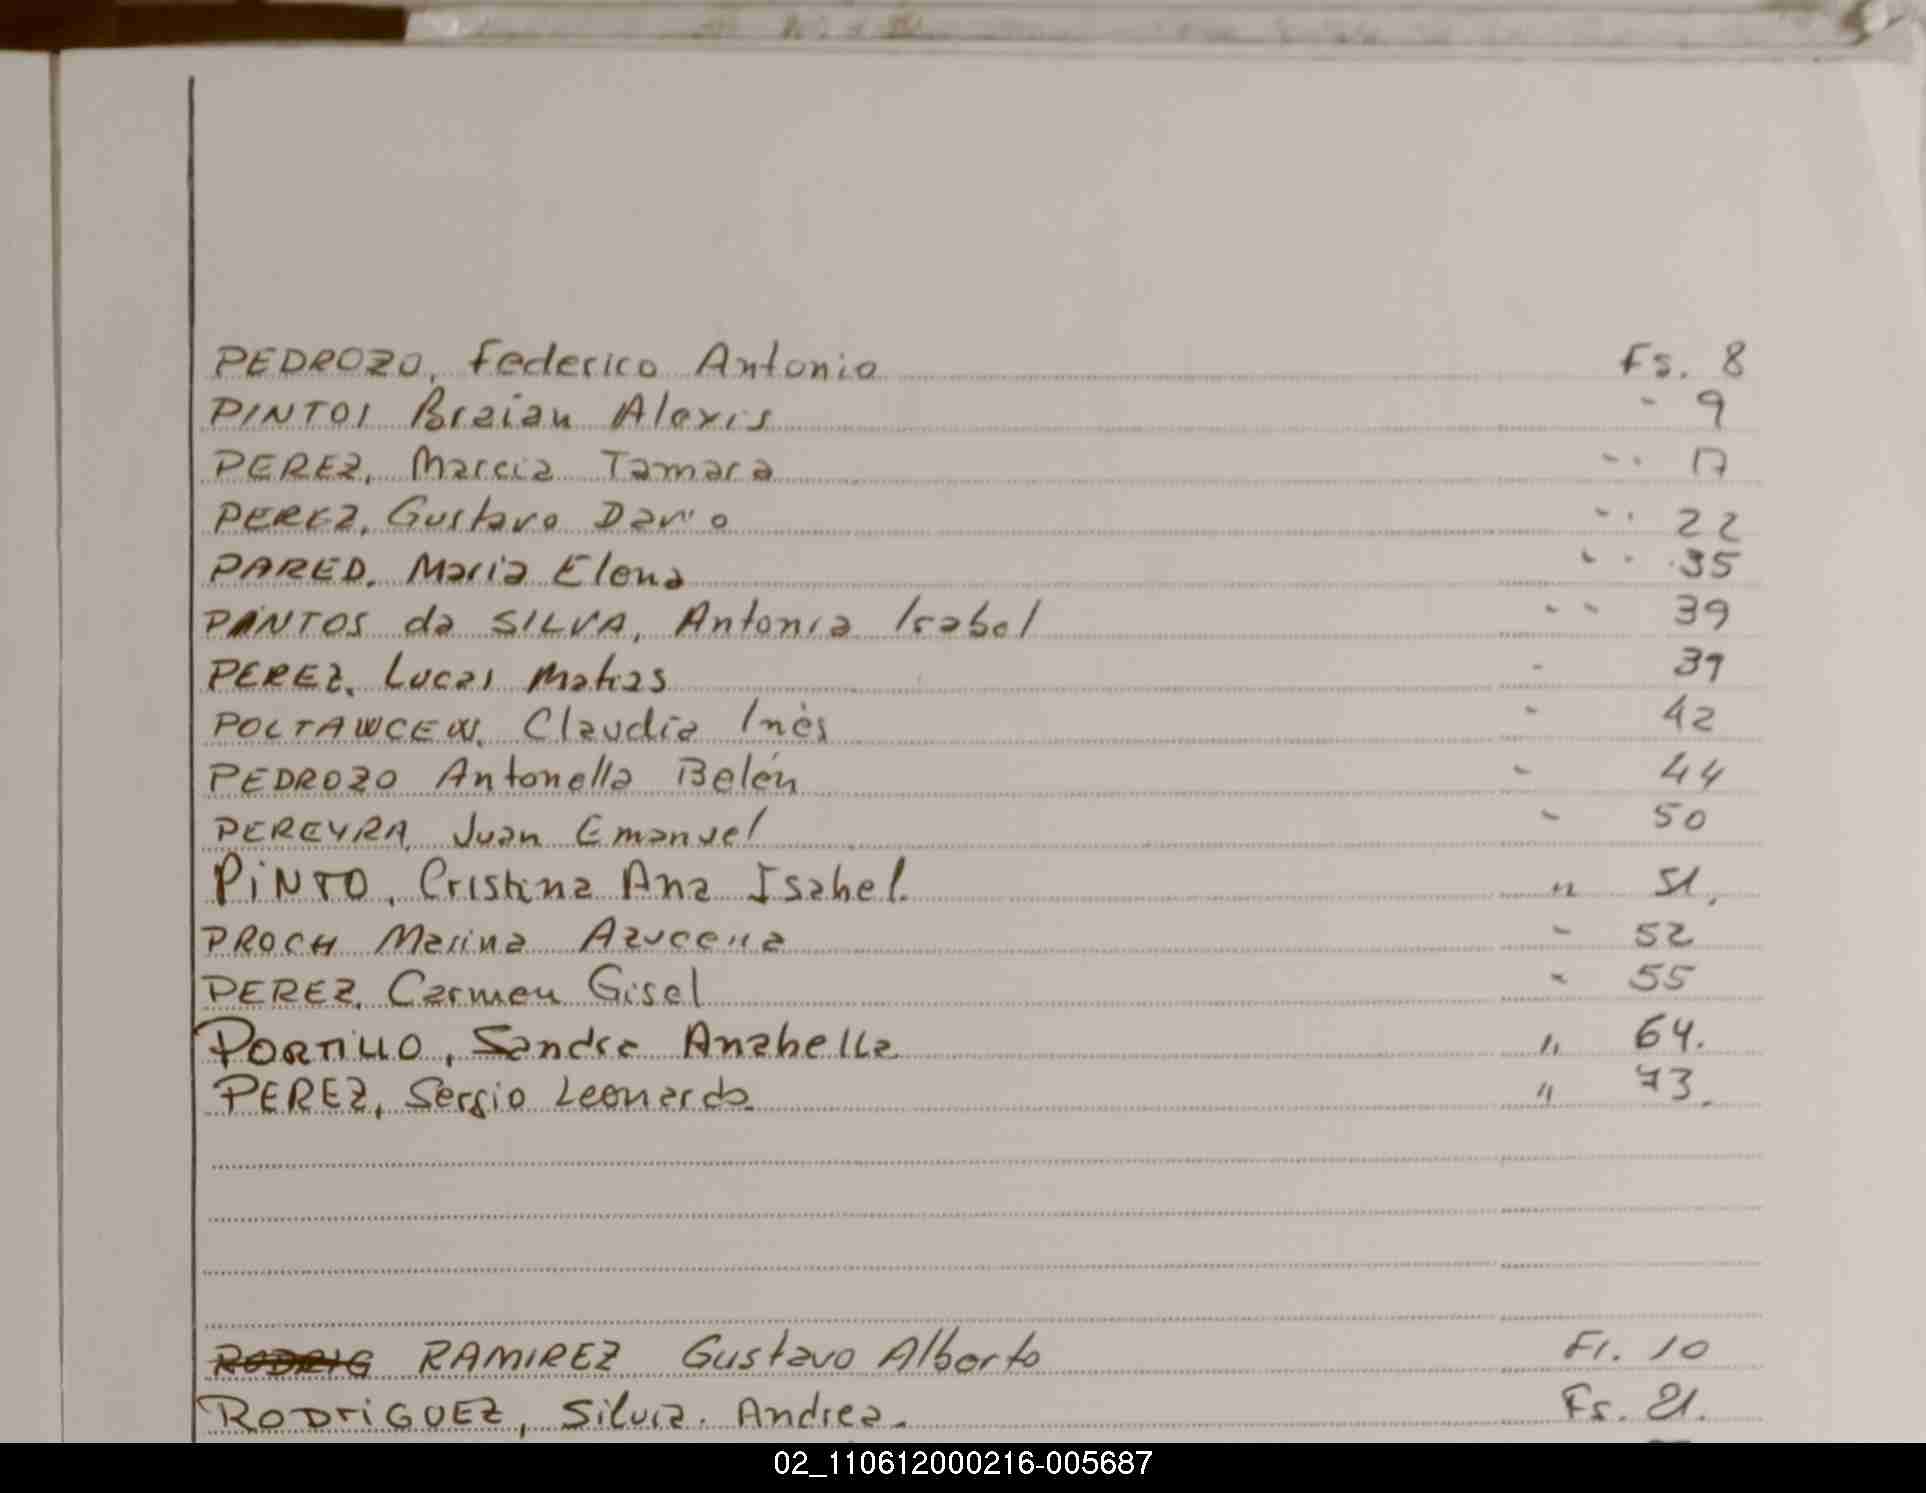 PEDROZO, Federico Antonio Fs. 8
PINTOS Braian Alexis " 9
PEREZ, Marcia Tamara " 17
PEREZ, Gustavo Dario " 22
PARED, Maria Elena " 35
PINTOS da SILVA, Antonia Isabel " 39
PEREZ, Lucas Matias " 39
POLTAWCEW, Claudia Inés " 42
PEDROZO Antonella Belén " 44
PEREYRA, Juan Emanuel " 50
PINTO, Cristina Ana Isabel. " 51.
PROCH Marina Azucena " 52
PEREZ, Carmen Gisel " 55
PORTILLO, Sandra Anabella " 64.
PEREZ, Sergio Leonardo. " 73.
RODRIG RAMIREZ Gustavo Alberto Fs. 10
RODRIGUEZ, Silvia. Andrea. Fs. 21.
02_110612000216-005687